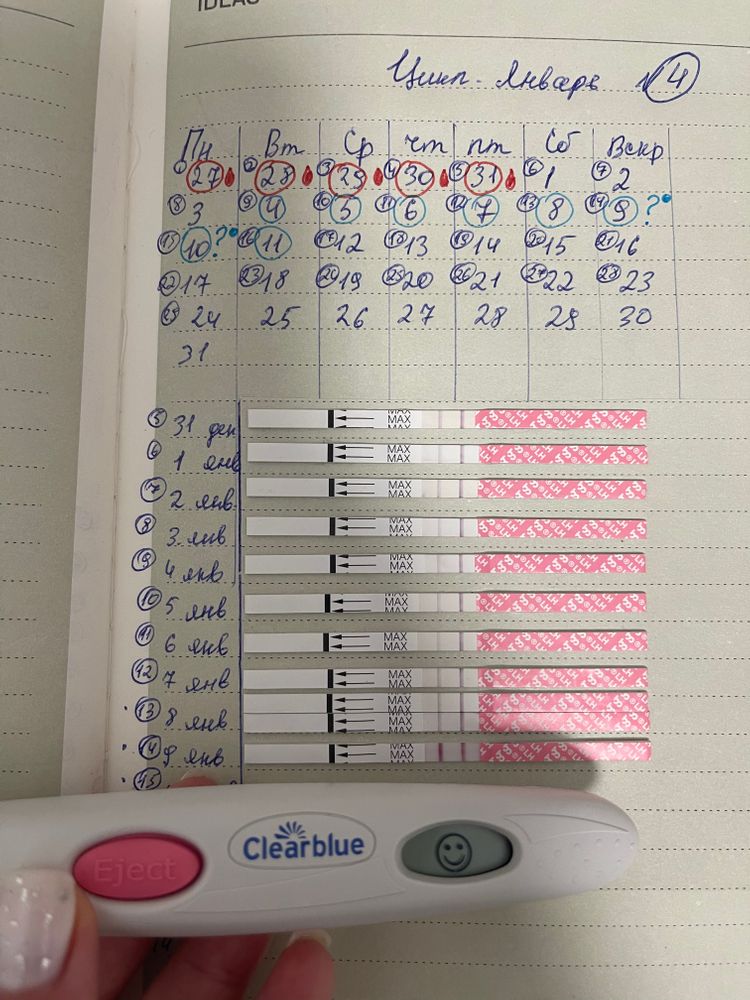 IDEAS
Цикл. Январь 14
Пн Вт Ср Чт Пт Сб Вскр
1 27 2 28 3 29 4 30 5 31 6 1 7 2
8 3 9 4 10 5 11 6 12 7 13 8 14 9 ?
15 10 ? 16 11 17 12 18 13 19 14 20 15 21 16
22 17 23 18 24 19 25 20 26 21 27 22 28 23
29 24 25 26 27 28 29 30
31
5 31 дек MAX MAX MAX LH
6 1 янв MAX MAX LH
7 2 янв MAX MAX LH
8 3 янв MAX MAX LH
9 4 янв MAX MAX MAX LH
10 5 янв MAX MAX MAX LH
11 6 янв MAX MAX LH
12 7 янв MAX MAX LH
13 8 янв MAX MAX MAX MAX LH
14 9 янв MAX MAX MAX LH
15
Eject Clearblue